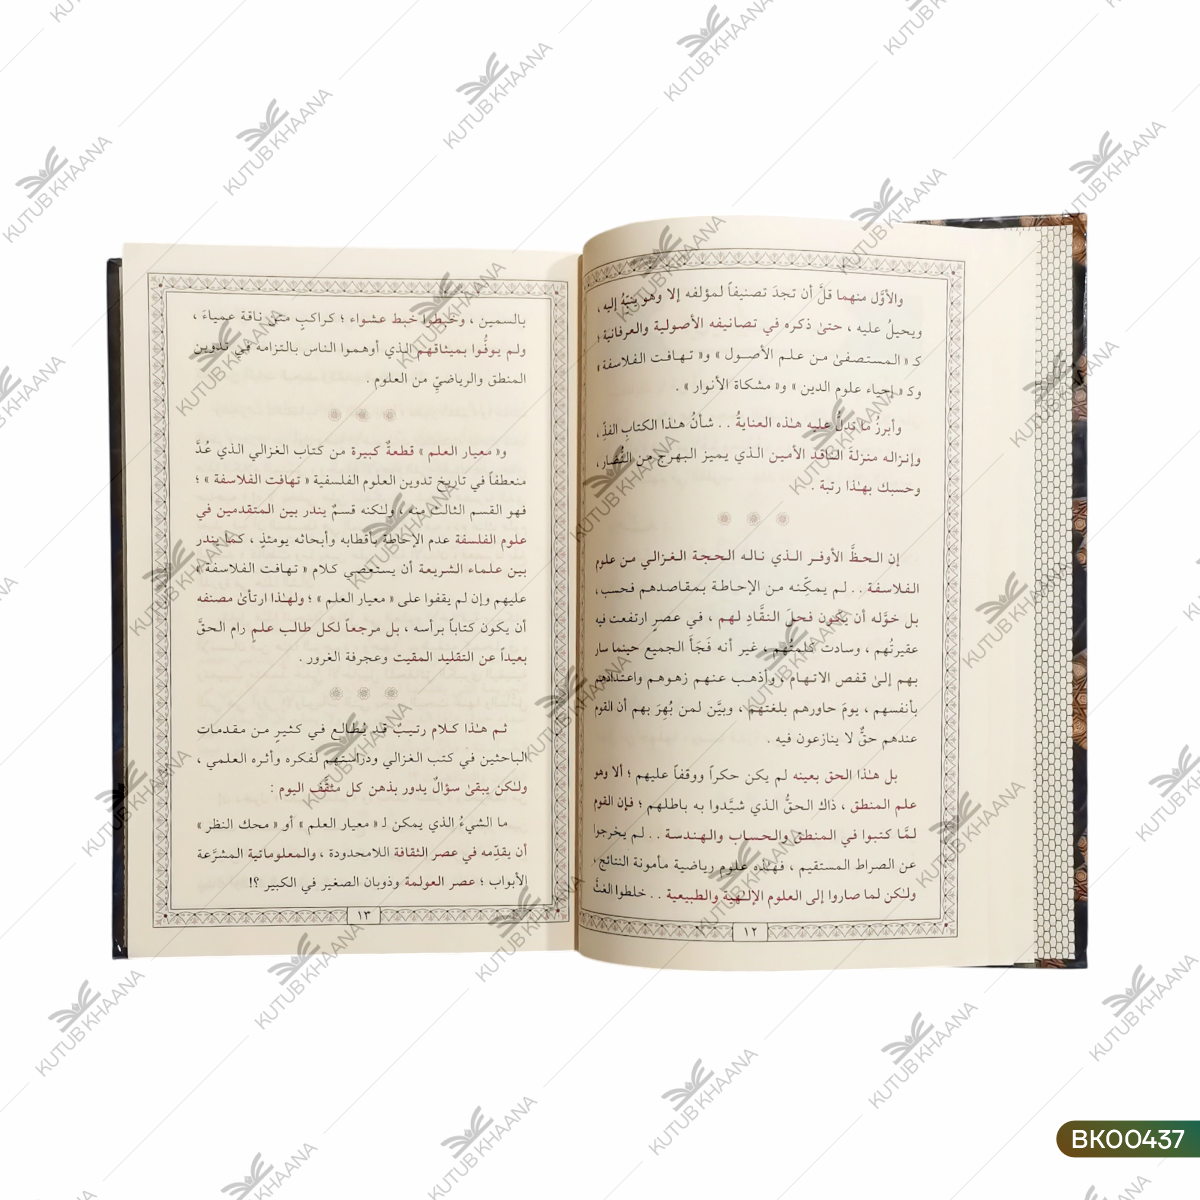 والأوَّل منهما قلَّ أن تجدَ تصنيفاً لمؤلفه إلا وهو ينبّهُ إليه ،
ويحيلُ عليه ، حتىٰ ذكره في تصانيفه الأصولية والعرفانية ؛
كـ « المستصفىٰ من علم الأصول » و« تهافت الفلاسفة »
وكـ « إحياء علوم الدين » و« مشكاة الأنوار » .
وأبرزُ ما تدلُّ عليه هـٰذه العنايةُ . . شأنُ هـٰذا الكتابِ الفذِّ ،
وإنزاله منزلةَ الناقد الأمين الذي يميز البهرج من النُّضار ،
وحسبك بهـٰذا رتبة .
إن الحظَّ الأوفر الذي ناله الحجة الغزالي من علوم
الفلاسفة . . لم يمكِّنه من الإحاطة بمقاصدهم فحسب ،
بل خوَّله أن يكون فحلَ النقَّادِ لهم ، في عصرٍ ارتفعت فيه
عقيرتُهم ، وسادت كلمتُهم ، غير أنه فَجَأَ الجميع حينما سار
بهم إلىٰ قفص الاتهام ، وأذهب عنهم زهوهم واعتدادهم
بأنفسهم ، يومَ حاورهم بلغتهم ، وبيَّن لمن بُهِرَ بهم أن القوم
عندهم حقٌّ لا ينازعون فيه .
بل هـٰذا الحق بعينه لم يكن حكراً ووقفاً عليهم ؛ ألا وهو
علم المنطق ، ذاك الحقُّ الذي شيَّدوا به باطلهم ؛ فإن القوم
لـمَّا كتبوا في المنطق والحساب والهندسة . . لم يخرجوا
عن الصراط المستقيم ، فهـٰذه علوم رياضية مأمونة النتائج ،
ولـٰكن لما صاروا إلى العلوم الإلـٰهية والطبيعية . . خلطوا الغثَّ
١٢
بالسمين ، وخبطوا خبط عشواء ؛ كراكبِ متن ناقة عمياءَ ،
ولم يوفُّوا بميثاقهم الذي أوهموا الناس بالتزامه في تدوين
المنطق والرياضيِّ من العلوم .
و« معيار العلم » قطعةٌ كبيرة من كتاب الغزالي الذي عُدَّ
منعطفاً في تاريخ تدوين العلوم الفلسفية « تهافت الفلاسفة » ؛
فهو القسم الثالث منه ، ولـٰكنه قسمٌ يندر بين المتقدمين في
علوم الفلسفة عدم الإحاطة بأقطابه وأبحاثه يومئذٍ ، كما يندر
بين علماء الشريعة أن يستعصي كلام « تهافت الفلاسفة »
عليهم وإن لم يقفوا على « معيار العلم » ؛ ولهـٰذا ارتأىٰ مصنفه
أن يكون كتاباً برأسه ، بل مرجعاً لكل طالب علمٍ رام الحقَّ
بعيداً عن التقليد المقيت وعجرفة الغرور .
ثم هـٰذا كلام رتيبٌ قد يُطالع في كثيرٍ من مقدمات
الباحثين في كتب الغزالي ودراستهم لفكره وأثره العلمي ،
ولـٰكن يبقىٰ سؤالٌ يدور بذهن كل مثقَّف اليوم :
ما الشيءُ الذي يمكن لـ « معيار العلم » أو « محك النظر »
أن يقدِّمه في عصر الثقافة اللامحدودة ، والمعلوماتية المشرَّعة
الأبواب ؛ عصر العولمة وذوبان الصغير في الكبير ؟!
١٣
KUTUB KHAANA
BK00437